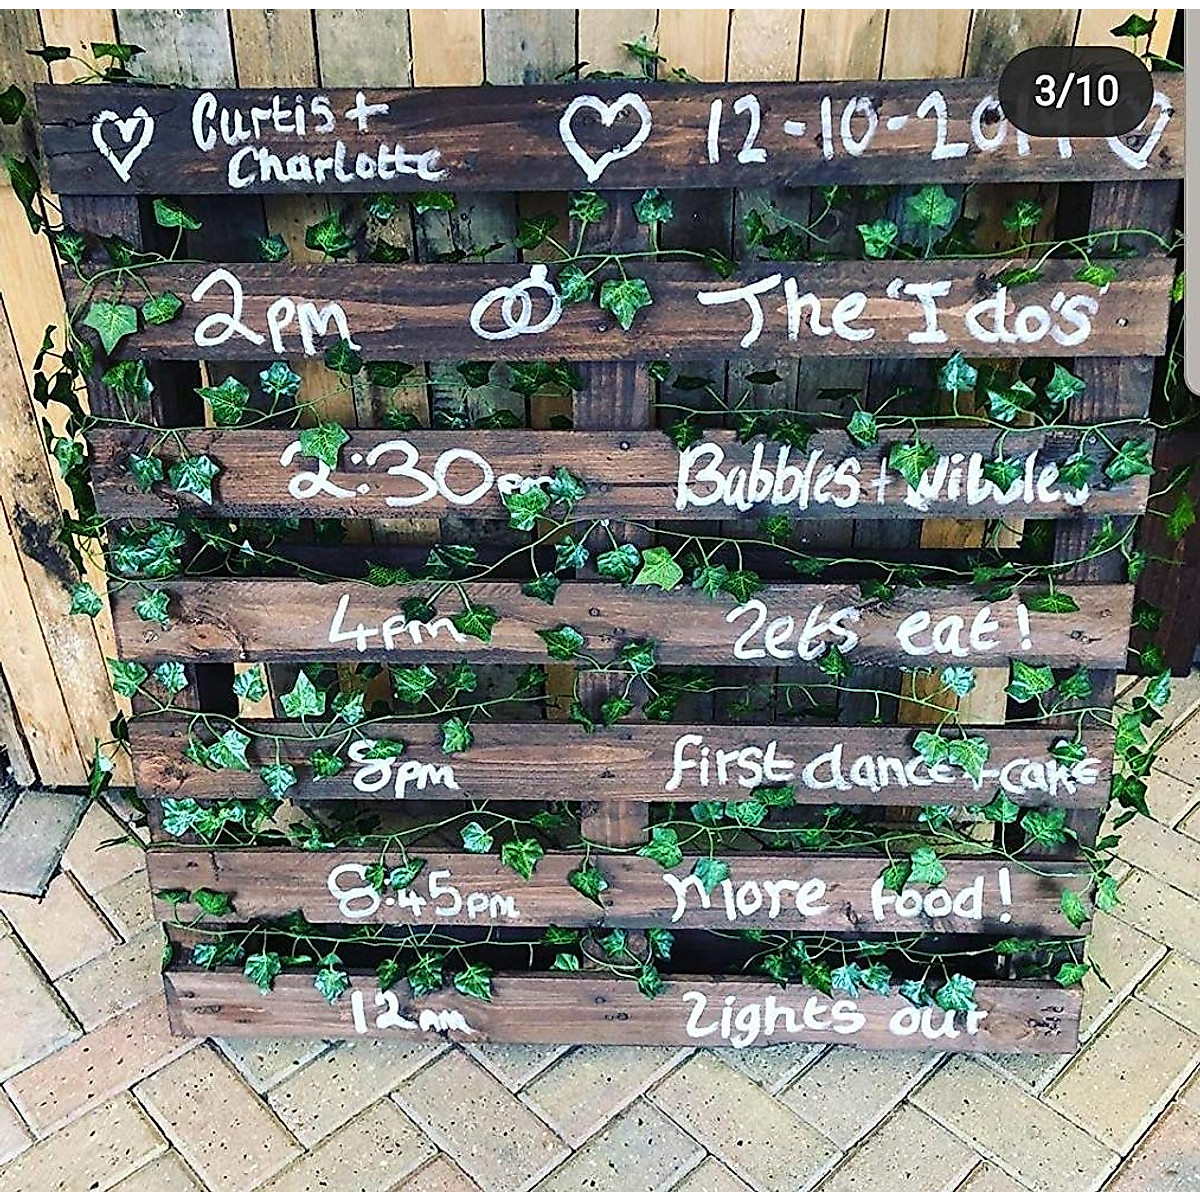 3/10
Curtis +
Charlotte
2pm The 'I do's'
2:30pm Bubbles + Nibbles
4pm Lets eat!
8pm first dance + cake
8:45pm More food!
12am Lights out